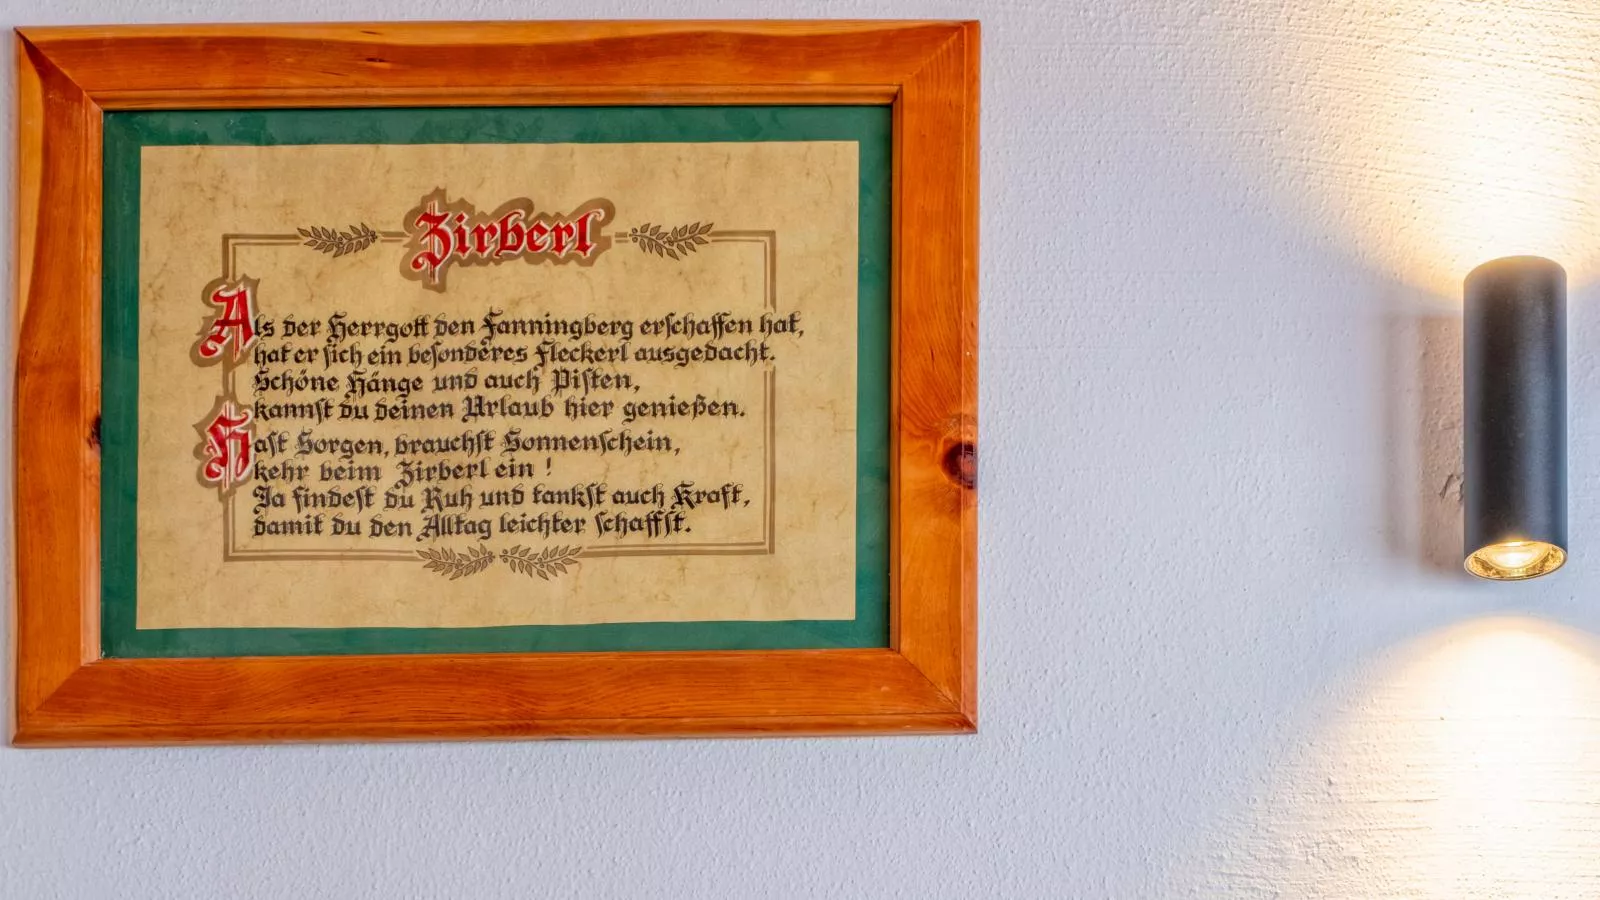 Zirberl
Als der Herrgott den Fanningberg erschaffen hat,
hat er sich ein besonderes Fleckerl ausgedacht.
Schöne Hänge und auch Pisten,
kannst du deinen Urlaub hier genießen.
Hast Sorgen, brauchst Sonnenschein,
kehr beim Zirberl ein !
Da findest du Ruh und tankst auch Kraft,
damit du den Alltag leichter schaffst.